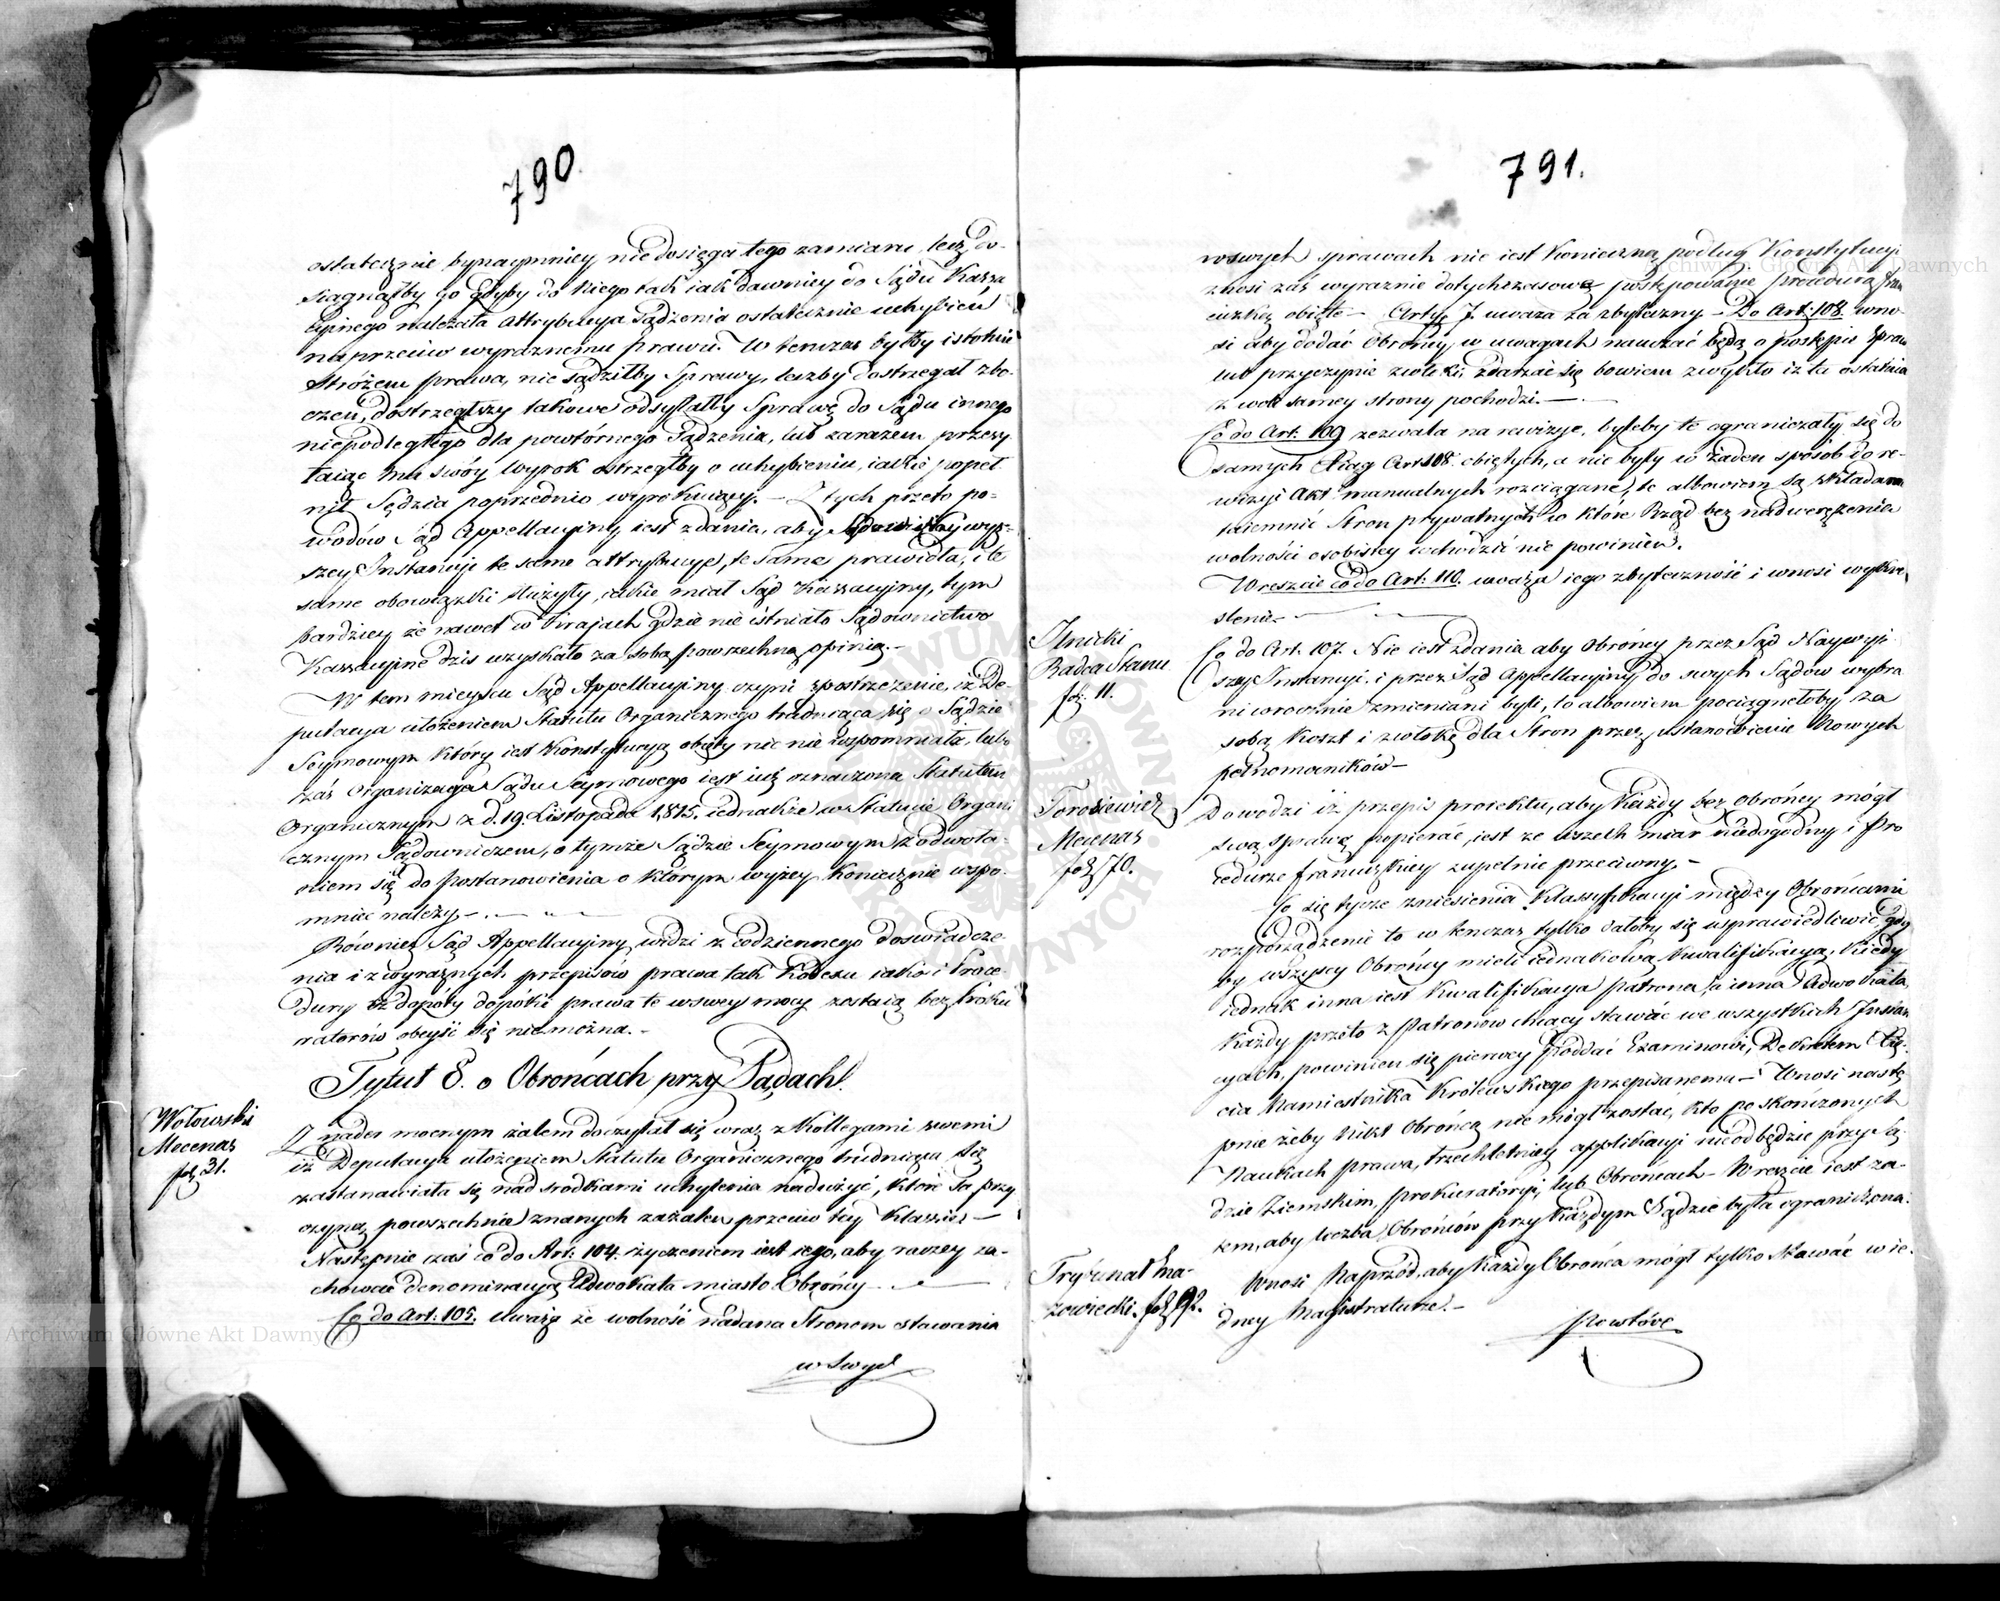 790.
ostatecznie bynaymniey niedosięga tego zamiaru, lecz do-
sięgnąłby go gdyby do niego tak iak dawniey do Sądu Kassa
cyinego należała attrybucya sądzenia ostatecznie uchybień
naprzeciw wyraznemu prawu. W tenczas byłby istotnie
Stróżem prawa, nie sądziłby Sprawy, leczby dostrzegał zbo-
czeń, dostrzegłszy takowe odsyłałby Sprawę do Sądu innego
niepodległego dla powtórnego Sądzenia, lub zarazem przesy
łaiąc mu swóy wyrok ostrzegłby o uchybieniu, iakie popeł
nił Sędzia poprzednio wyrokuiący. — Z tych przeto po-
wodów Sąd Appellacyiny iest zdania, aby Naywyż-
szey Instancyi te same attrybucye, te same prawidła, i te
same obowiązki służyły, iakie miał Sąd Kassacyiny, tym
bardziey że nawet w Kraiach gdzie nie istniało Sądownictwo
Kassacyine dziś uzyskało za sobą powszechną opinią. —
W tem mieyscu Sąd Appellacyiny czyni spostrzeżenie, iż De-
putacya ułożeniem Statutu Organicznego trudniąca się o Sądzie
Seymowym który iest Konstytucyą obięty nic nie wspomniała, lubo
zaś Organizacya Sądu Seymowego iest iuż oznaczona Statutem
Organicznym z d. 19. Listopada 1815. iednakże w Statucie Organi
cznym Sądowniczem, o tymże Sądzie Seymowym z odwoła-
niem się do postanowienia o którym wyżey koniecznie wspo-
mnieć należy. —
Również Sąd Appellacyiny widzi z codziennego doswiadcze-
nia i z wyraznych przepisów prawa tak Kodexu iako i Proce-
dury iż dopóty dopóki prawa te w swey mocy zostaią bez Proku
ratorów obeyść się nie można. —
Tytuł 8. o Obrońcach przy Sądach.
Wołowski
Mecenas
fol. 31.
Z nader mocnym żalem doczytał się wraz z Kollegami swemi
iż Deputacya ułożeniem Statutu Organicznego trudniąca się
zastanawiała się nad srodkami uchylenia nadużyć, które są przy
czyną powszechnie znanych zażaleń przeciw tey Klassie —
Następnie zaś co do Art: 104. życzeniem iest iego, aby raczey za-
chować denominacyą Adwokata miasto Obrońcy —
Co do Art: 105. uważa że wolność nadana Stronom stawania
w swych
791.
w swych sprawach nie iest konieczną podług Konstytucyi
znosi zaś wyraznie dotychczasowe postępowanie procedurą fran
cuzką obięte — Arty. 7. uważa za zbyteczny — Do Art: 108. wno-
si aby dodać Obrońcy w uwagach nauczać będą o postępie Spraw
lub przyczynie zwłoki, zdarzać się bowiem zwykło iż ta ostatnia
z woli samey strony pochodzi. —
Co do Art: 109 zezwala na rewizye, byleby te ograniczały się do
samych Xiąg Art 108. obiętych, a nie były w żaden sposób do re-
wizyi Akt manualnych rozciągane, te albowiem są składem
taiemnic Stron prywatnych w które Rząd bez nadwerężenia
wolności osobistey wchodzić nie powinien.
Wreszcie co do Art: 110. uważa iego zbyteczność i wnosi wykre
slenie —
Ilnicki
Radca Stanu
fol: 11.
Co do Art: 107. Nie iest zdania aby Obrońcy przez Sąd Naywyż
szey Instancyi i przez Sąd Appellacyiny do swych Sądów wybra
ni corocznie zmieniani byli, to albowiem pociągnęłoby za
sobą koszt i zwłokę dla Stron przez ustanowienie nowych
pełnomocników —
Torosiewicz
Mecenas
fol 70.
Dowodzi iż przepis proiektu, aby każdy bez obrońcy mógł
swą sprawę popierać, iest ze wszech miar niedogodny i Pro
cedurze francuzkiey zupełnie przeciwny. —
Co się tycze zniesienia Klassyfikacyi między Obrońcami
rozporządzenie to w tenczas tylko dałoby się usprawiedliwić, gdy
by wszyscy Obrońcy mieli iednakową kwalifikacyą, kiedy
iednak inna iest kwalifikacya Patrona, a inna Adwokata,
każdy przeto z Patronów chcący stawać we wszystkich Instan
cyach, powinien się pierwey poddać Examinowi, Dekretem Xię-
cia Namiestnika Królewskiego przepisanemu — Wnosi nastę
pnie żeby nikt Obrońcą nie mógł zostać, kto po skończonych
Naukach prawa, trzechletniey applikacyi nie odbędzie przy Są-
dzie Ziemskim, Prokuratoryi, lub Obrońcach — Wreszcie iest za-
tem, aby liczba Obrońców przy każdym Sądzie była ograniczona.
Trybunał Ma-
zowiecki. fol 92.
Wnosi Naprzód, aby każdy Obrońca mógł tylko stawać w ie-
dney Magistraturze. —
Powtóre
Archiwum Główne Akt Dawnych
Archiwum Główne Akt Dawnych